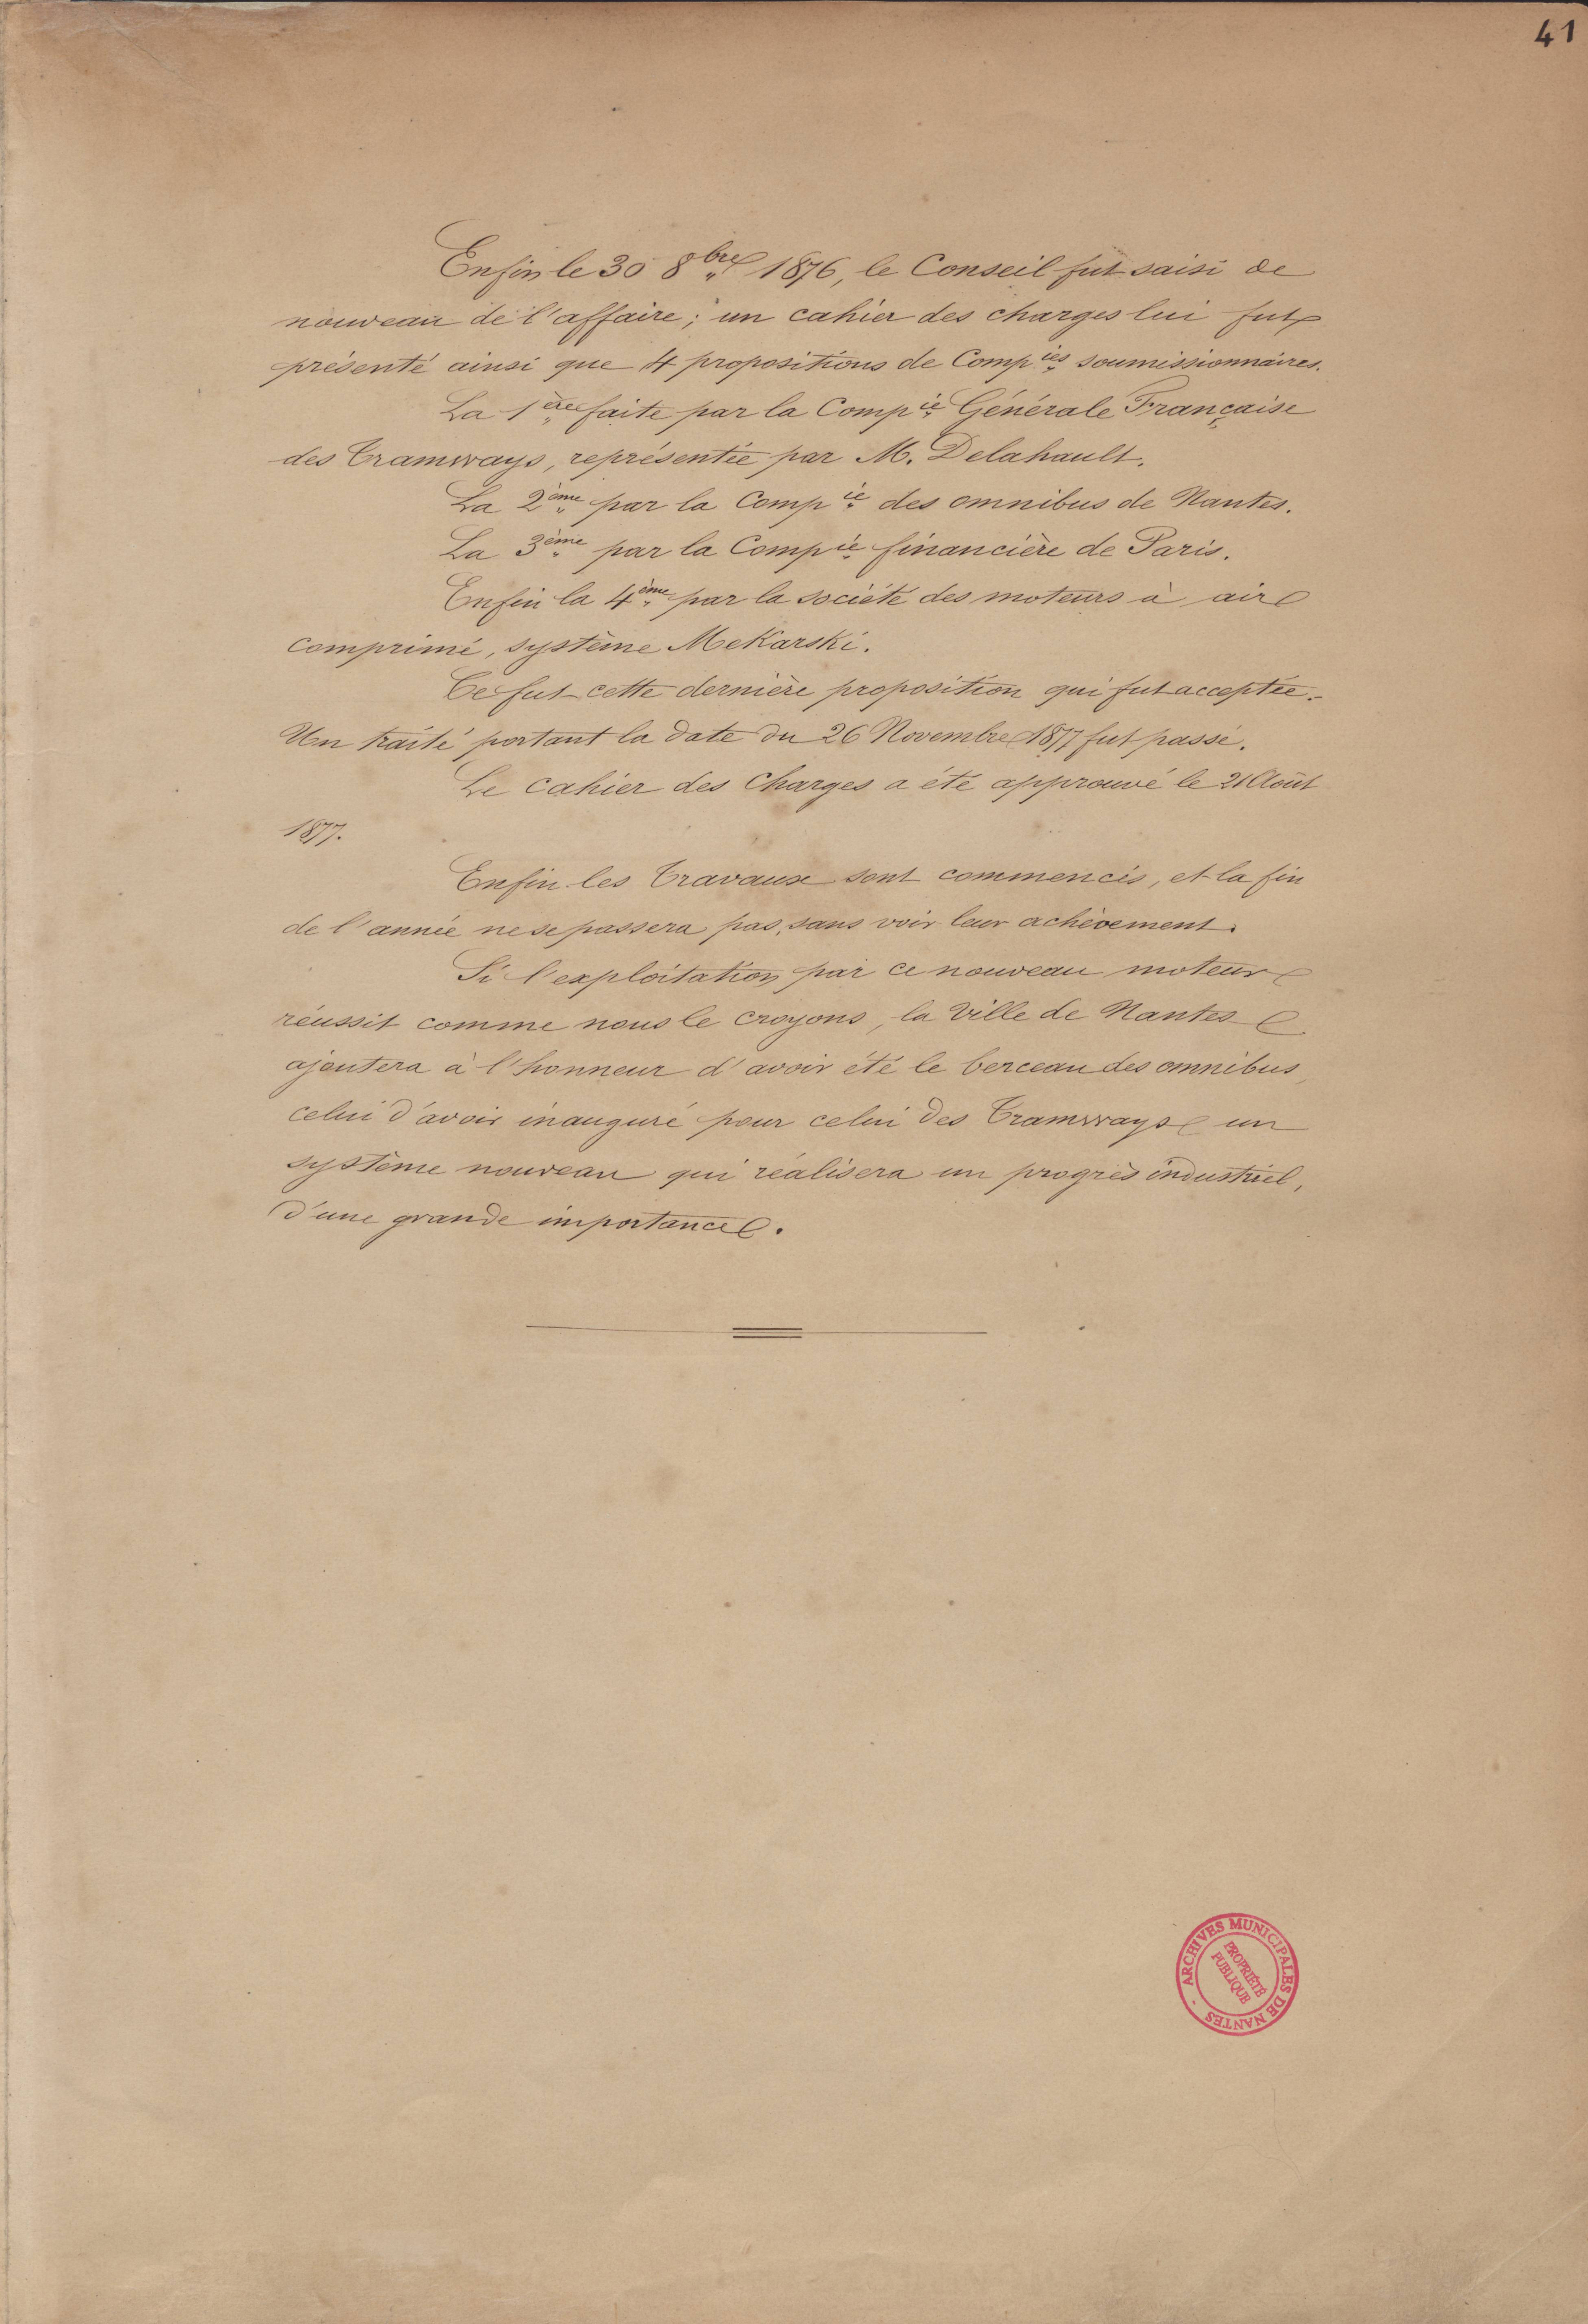 41
Enfin le 30 8bre 1876, le Conseil fut saisi de
nouveau de l'affaire; un cahier des charges lui fut
présenté ainsi que 4 propositions de Compies soumissionnaires.
La 1ère faite par la Compie Générale Française
des Tramways, représentée par M. Delahault.
La 2ème par la Compie des omnibus de Nantes.
La 3ème par la Compie financière de Paris.
Enfin la 4ème par la société des moteurs à air
comprimé, système MeKarski.
Ce fut cette dernière proposition qui fut acceptée.
Un traité portant la date du 26 Novembre 1877 fut passé.
Le cahier des Charges a été approuvé le 21 Août
1877.
Enfin les Travaux sont commencés, et la fin
de l'année ne se passera pas, sans voir leur achèvement.
Si l'exploitation par ce nouveau moteur
réussit comme nous le croyons, la Ville de Nantes
ajoutera à l'honneur d'avoir été le berceau des omnibus,
celui d'avoir inauguré pour celui des Tramways un
système nouveau qui réalisera un progrès industriel,
d'une grande importance.
ARCHIVES MUNICIPALES DE NANTES -
PROPRIÉTÉ
PUBLIQUE